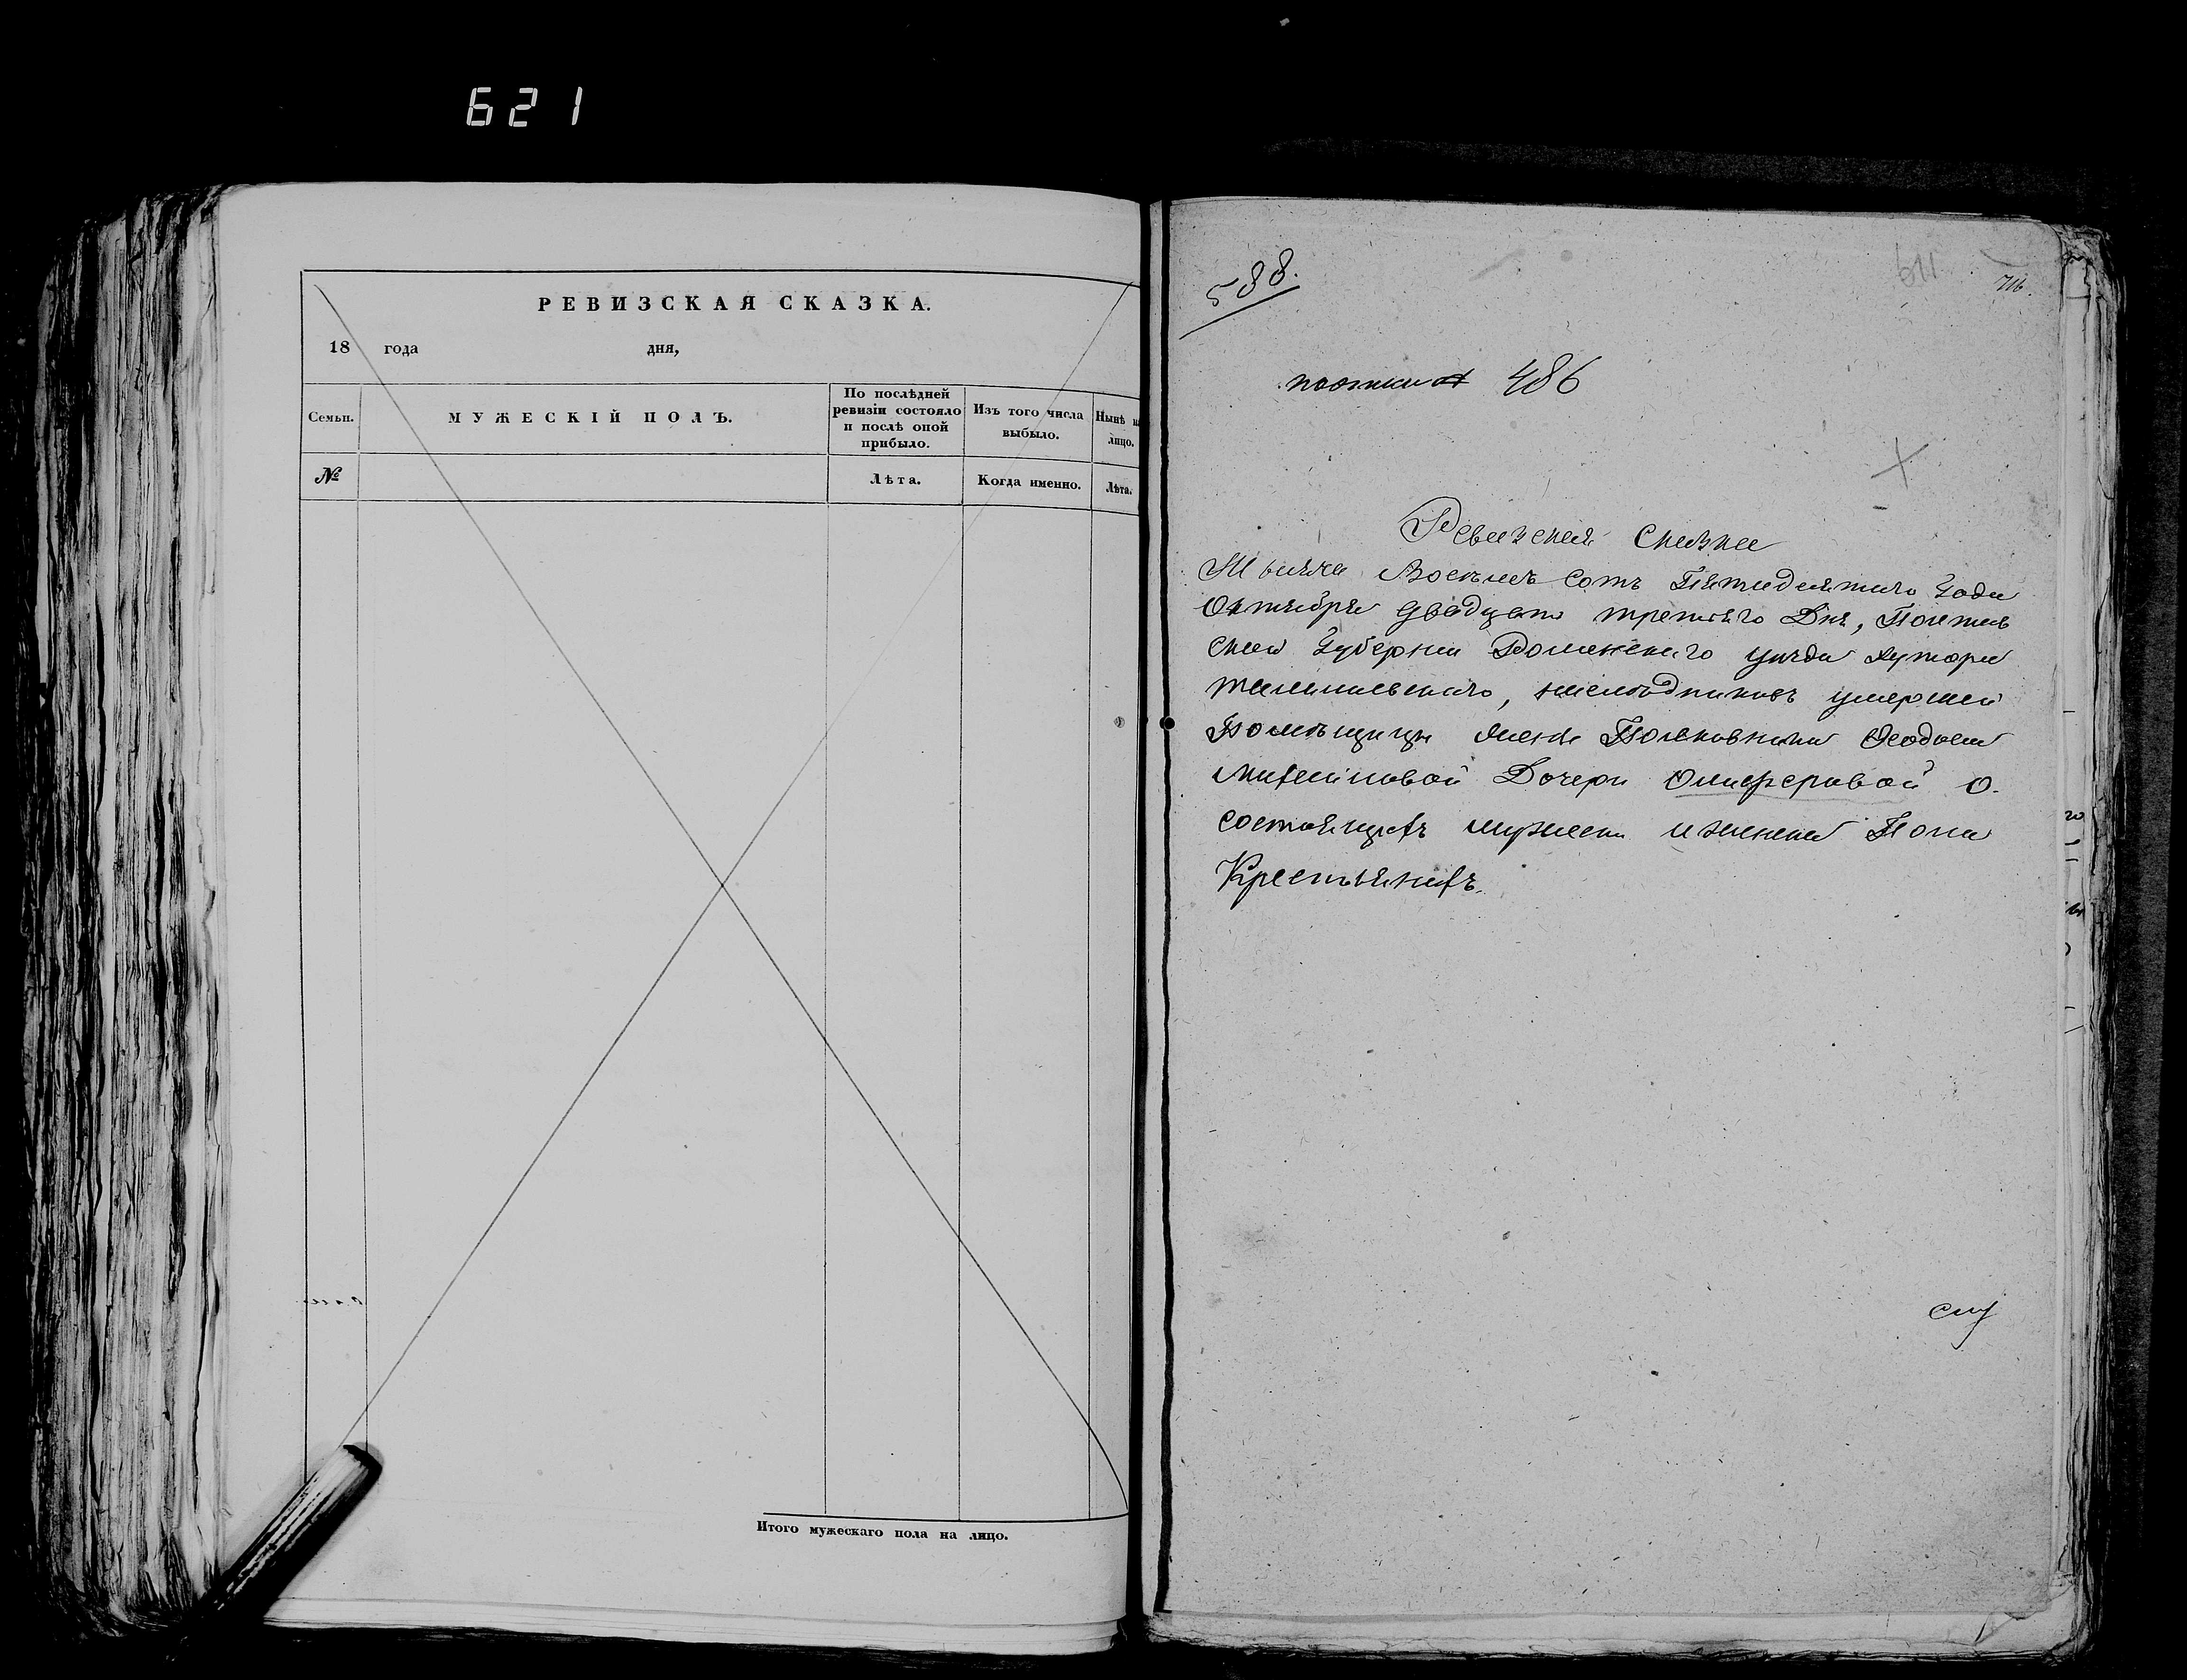 621
РЕВИЗСКАЯ СКАЗКА.
18 года дня,
Семьи.
МУЖЕСКІЙ ПОЛЪ.
По послѣдней ревизіи состояло и послѣ оной прибыло.
Изъ того числа выбыло.
Нынѣ на лицо.
№
Лѣта.
Когда именно.
Лѣта.
Итого мужескаго пола на лицо.
588.
611
716.
486
Ревизская Сказка
Тысяча Восемь сотъ Пятидесятого Года
Октября двадцать третьего Дня, Полтав
ской Губернии Роменского уезда хутора
наследниковъ умершей
Помѣщицы Полковника Феодосии
Михаиловой Дочери Олиферовой о
состоящихъ мужеска и женска Пола
Крестьянахъ.